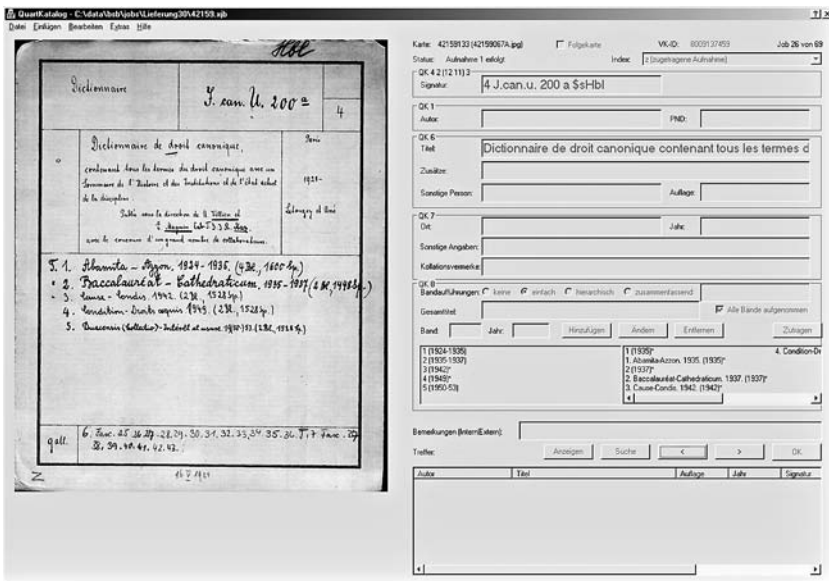 QuartKatalog - C:\data\bsb\jobs\Lieferung30\42159.xjb
Datei Einfügen Bearbeiten Extras Hilfe
Hbl
Dictionnaire
J. can. U. 200 a
4
Dictionnaire de droit canonique,
contenant tous les termes du droit canonique avec un
Sommaire de l'Histoire et des Institutions et de l'état actuel
de la discipline.
Publié sous la direction de
avec le concours d'un grand nombre de collaborateurs.
Paris
1924-
Letouzey et Ané
T. 1. Abamita - Azzon. 1924-1935. (4 Bl., 1600 Sp.)
2. Baccalauréat - Cathedraticum. 1935-1937 (2 Bl., 1498 Sp.)
3. Cause - Condis. 1942. (2 Bl., 1528 Sp.)
4. Condition - Droits acquis 1949. (2 Bl., 1528 Sp.)
5. Duacensis (Collectio) - Intérêt et usure. 1950-53. (2 Bl., Sp.)
gall.
6. Fasc. 25. 26. 27. 28. 29. 30. 31. 32. 33, 34. 35. 36. T. 7 Fasc.
39. 40. 41. 42. 43.
Z
Karte: 42159133 (42159067A.jpg)
Folgekarte
VK-ID: 8009137459
Job 26 von 69
Status: Aufnahme 1 erfolgt
Index: z (zugetragene Aufnahme)
QK 4 2 (12 11) 3
Signatur: 4 J.can.u. 200 a $sHbl
QK 1
Autor:
PND:
QK 6
Titel: Dictionnaire de droit canonique contenant tous les termes d
Zusätze:
Sonstige Person:
Auflage:
QK 7
Ort:
Jahr:
Sonstige Angaben:
Kollationsvermerke:
QK 8
Bandaufführungen: keine einfach hierarchisch zusammenfassend
Gesamttitel:
Alle Bände aufgenommen
Band: Jahr: Hinzufügen Ändern Entfernen Zutragen
1 (1924-1935)
2 (1935-1937)
3 (1942)*
4 (1949)*
5 (1950-53)
1 (1935)*
1. Abamita-Azzon. 1935. (1935)*
2 (1937)*
2. Baccalauréat-Cathedraticum. 1937. (1937)*
3. Cause-Condis. 1942. (1942)*
4. Condition-Dr
Bemerkungen (Intern|Extern):
Treffer: Anzeigen Suche < > OK
Autor Titel Auflage Jahr Signatur